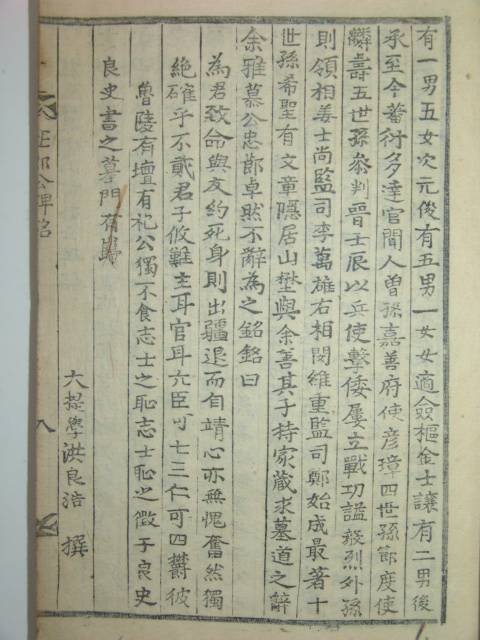 有一男五女次元俊有五男一女女適僉樞金士讓有二男後
承至今蕃衍多達官聞人曾孫嘉善府使彦璋四世孫節度使
麟壽五世孫參判晋壬辰以兵使擊倭屢立戰功謚毅烈外孫
則領相姜士尚監司李萬雄右相閔維重監司鄭始成最著十
世孫希聖有文章隱居山樊與余善其子持家蔵求墓道之辭
余雅慕公忠節卓然不辭為之銘銘曰
為君致命與友約死身則出疆退而自靖心亦無愧奮然獨
絶確乎不貳君子攸難主耳官耳六臣可七三仁可四欝彼
魯陵有壇有祀公獨不食志士之恥志士恥之徵于良史
良史書之墓門有歸
大提學洪良浩 撰
公碑銘
八